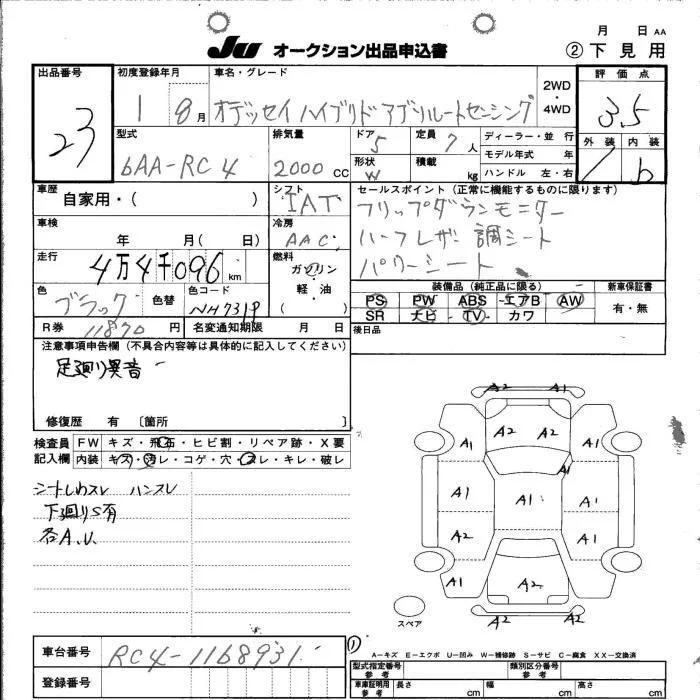 月 日 AA
JU オークション出品申込書
② 下見用
出品番号
23
初度登録年月
1 8月
車名・グレード
オデッセイ ハイブリド アブソルートセンシング
2WD
・
4WD
評価点
3.5
外装 内装
b
型式
6AA-RC4
排気量
2000 CC
ドア
5
定員
7 人
形状
W
積載
kg
ディーラー・並 行
モデル年式 年
ハンドル 左・右
車歴
自家用・( )
シフト
IAT
セールスポイント(正常に機能するものに限ります)
フリップダウンモニター
ハーフレザー調シート
パワーシート
車検
年 月( 日)
冷房
AAC
走行
4万4千096 km
燃料
ガソリン
・
軽・油
( )
色
ブラック
色替
色コード
NH731P
装備品(純品正に限る)
PS PW ABS エアB AW
SR ナビ TV カワ
新車保証書
有・無
R券 11870 円
名変通知期限 月 日
後日品
注意事項申告欄(不具合内容等は具体的に記入してください)
足廻り異音
修復歴 有 〔箇所 〕
検査員 FW キズ・飛石・ヒビ割・リペア跡・X要
記入欄 内装 キズ・汚レ・コゲ・穴・スレ・キレ・破レ
シートしわスレ ハンスレ
下廻りS有
各A.U.
A2 A1
A1 A2 A2 A1
A1
A1 A1 A1
A2 A2
A1 A2 A1
A2 A2
スペア
車台番号
RC4-1168931
登録番号
①
A-キズ E-エクボ U-凹み W-補修跡 S-サビ C-腐食 XX-交換済
型式指定番号
参考
類別区分番号
参考
車庫証明用
参考
長さ cm
幅 cm
高さ cm